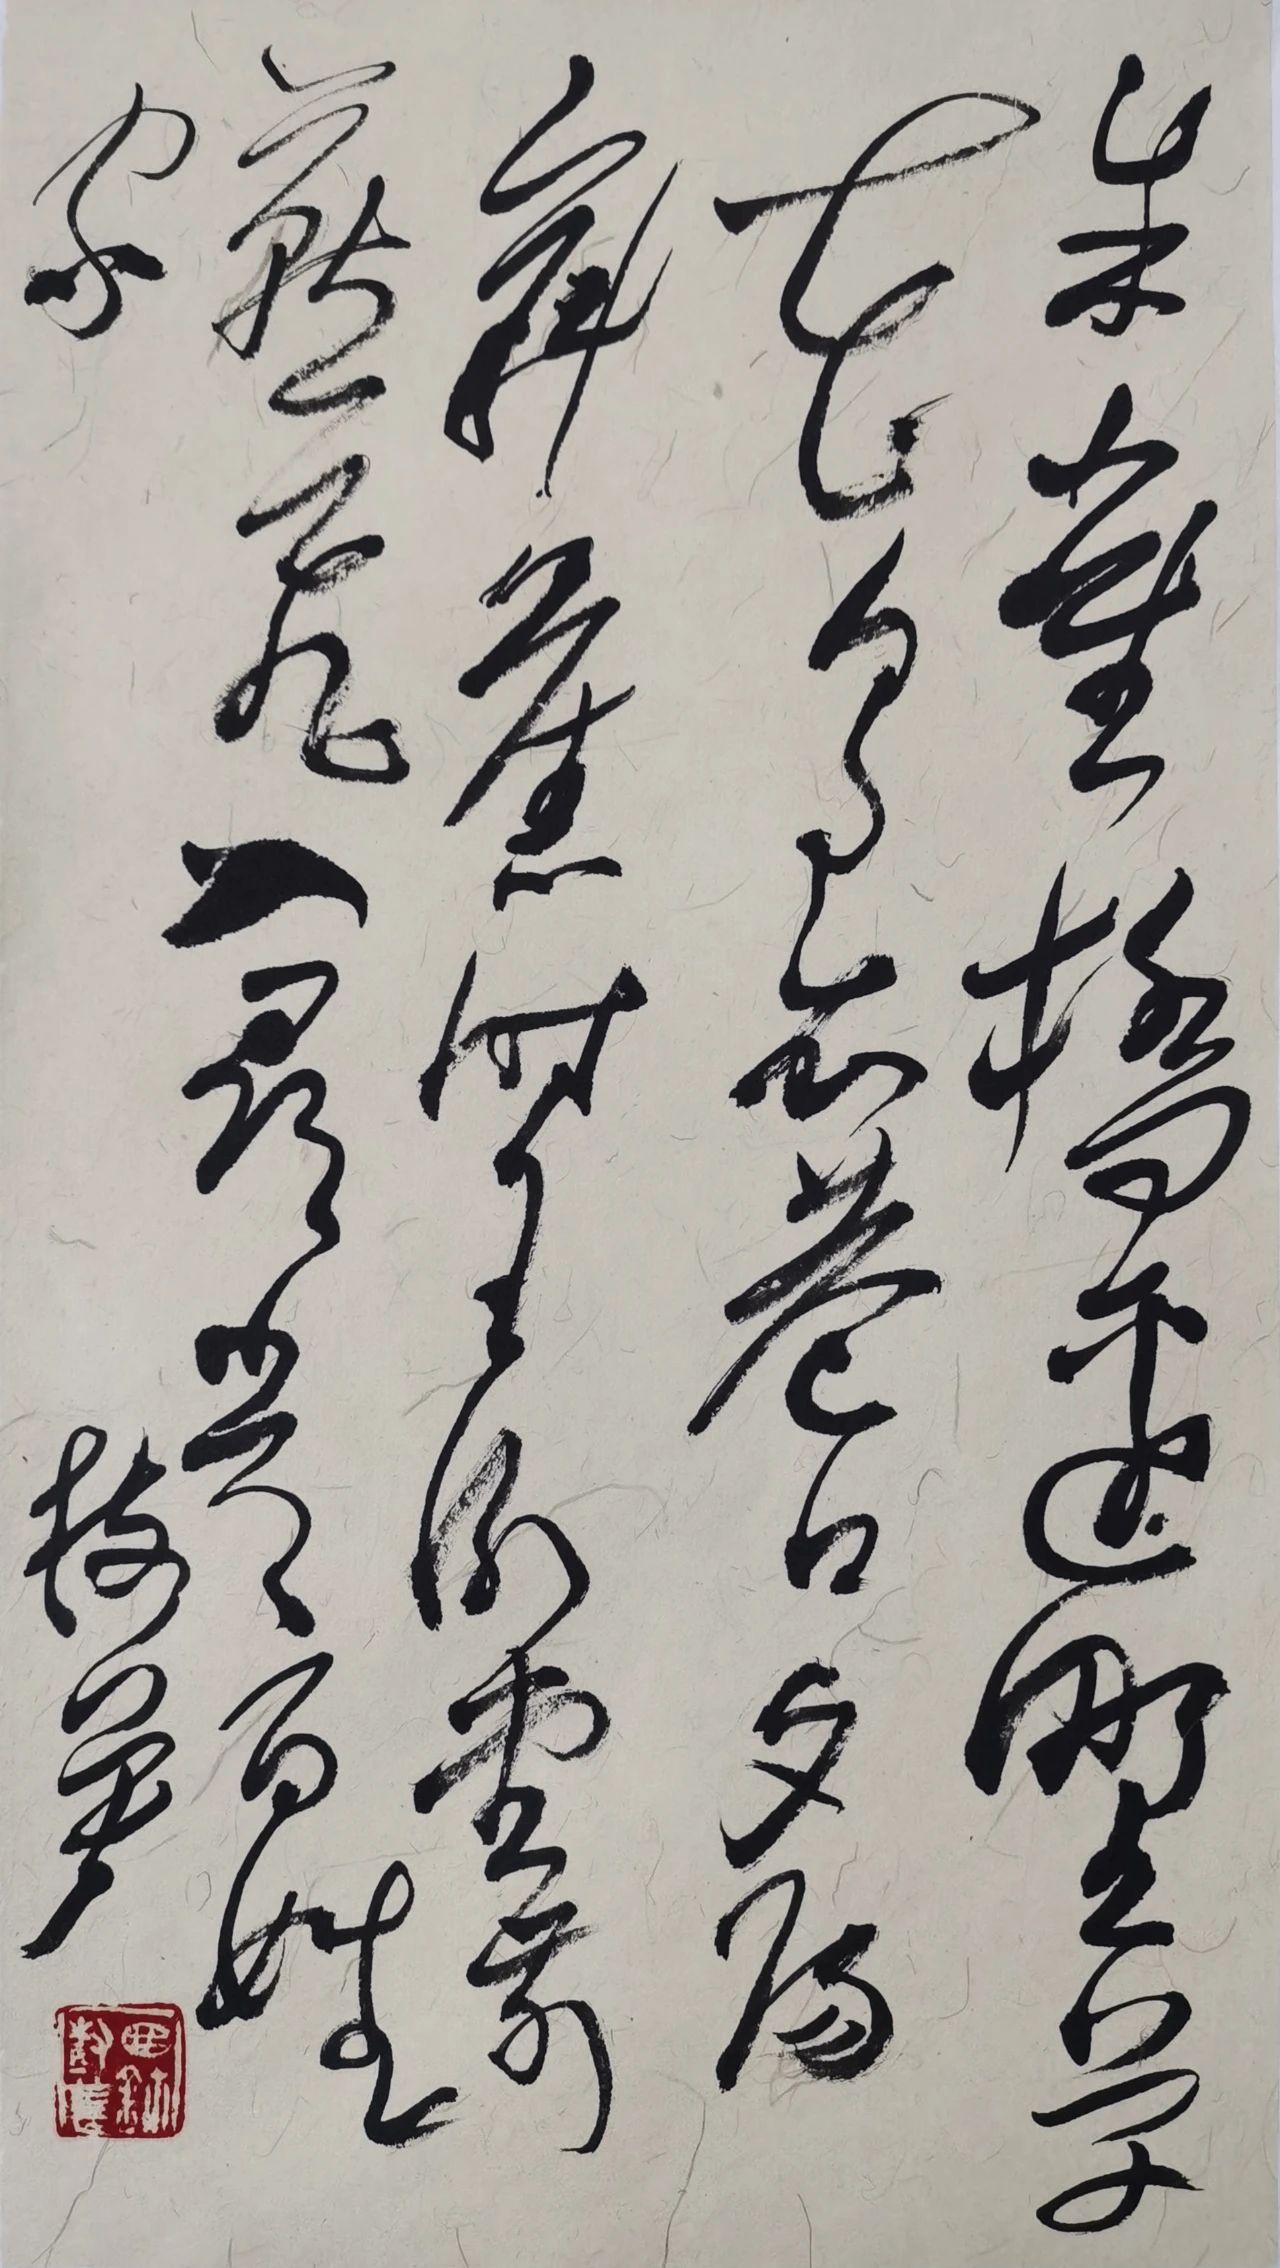 朱雀橋邊野草
花烏衣巷口夕陽
斜舊時王謝堂前
燕飛入尋常百姓
家